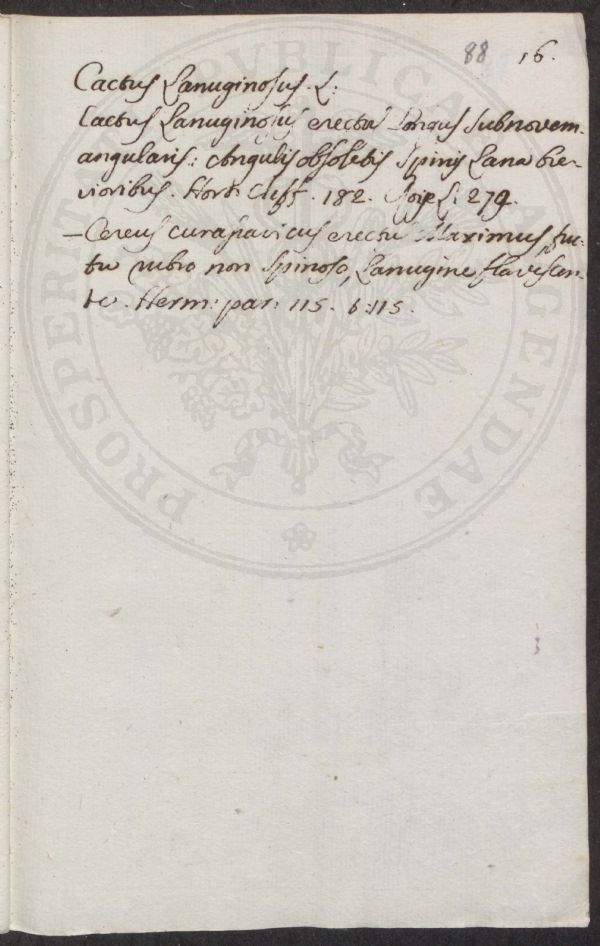 88 16.
Cactus Lanuginosus. L:
Cactus Lanuginosus erectus Longus Subnovem-
angularis: Angulis obsoletis Spinis Lana bre-
vioribus. Hort: Cliff. 182. 279.
– Cereus curassavicus erectus Maximus fruc-
tu rubro non Spinoso, Lanugine flavescen-
te. Herm: par: 115. t: 115.
PROSPERITATI PVBLICAE AVGENDAE